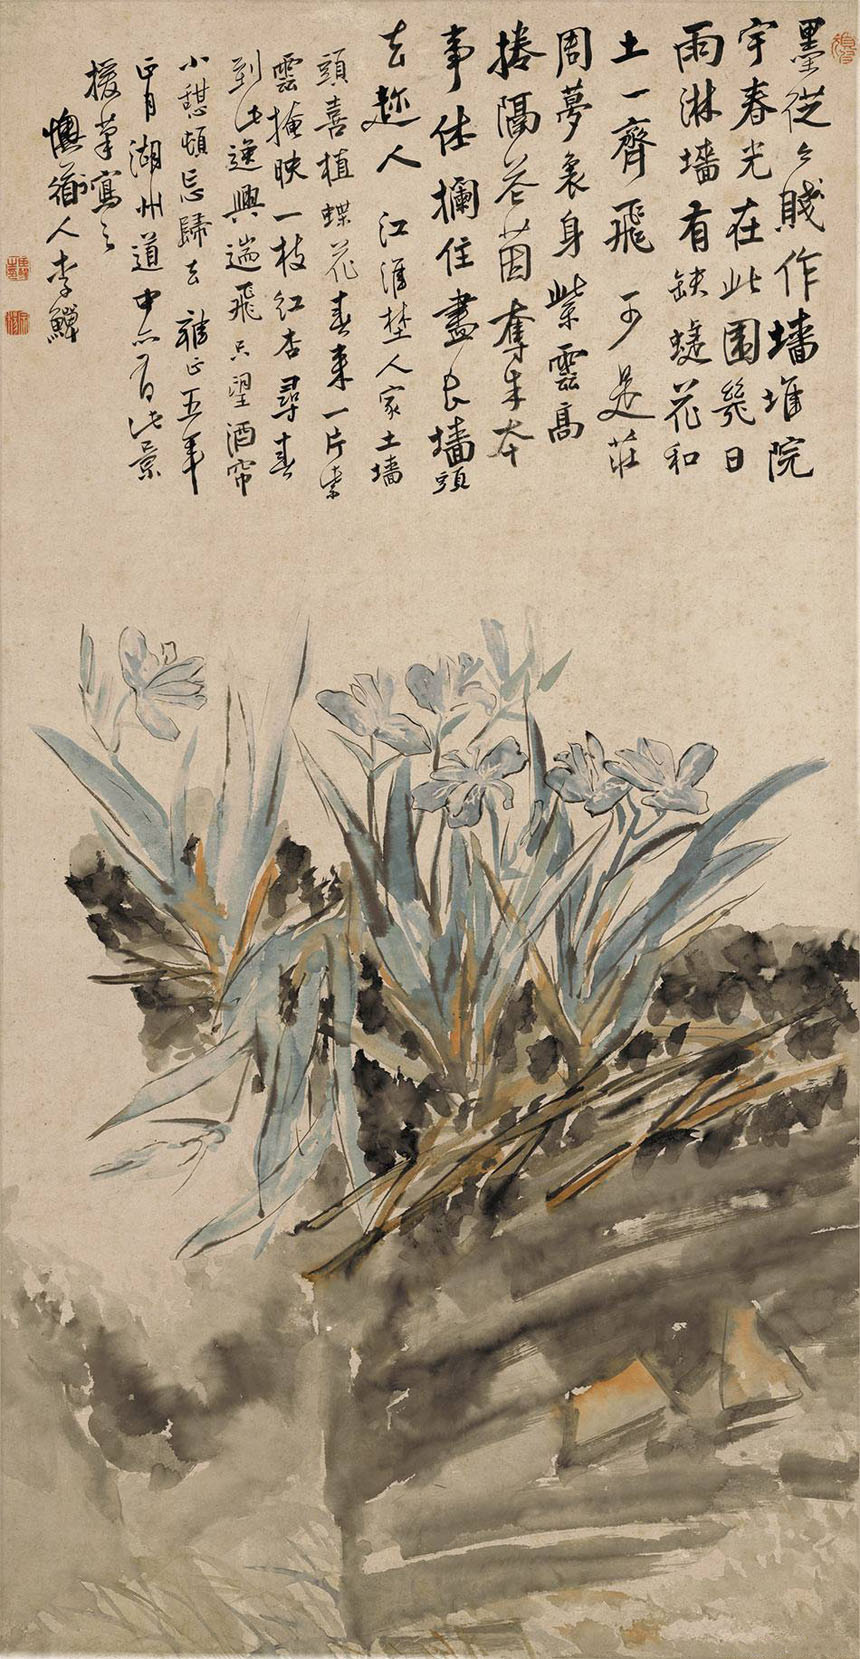 墨從々賤作墻堆院
宇春光在此圍幾日
雨淋墻有缺蝴花和
土一齊飛 不是莊
周夢裏身紫雲高
捲隔花茵牽牛本
事仕攔住盡長墻頭
去趂人 江淮埜人家土墻
頭喜植蝶花春來一片紫
雲掩映一枝紅杏尋春
到此逸興遄飛只望酒帘
小憩頓忘歸去 雍正五年
正月湖州道中亦有此景
援筆寫之
懊道人李鱓